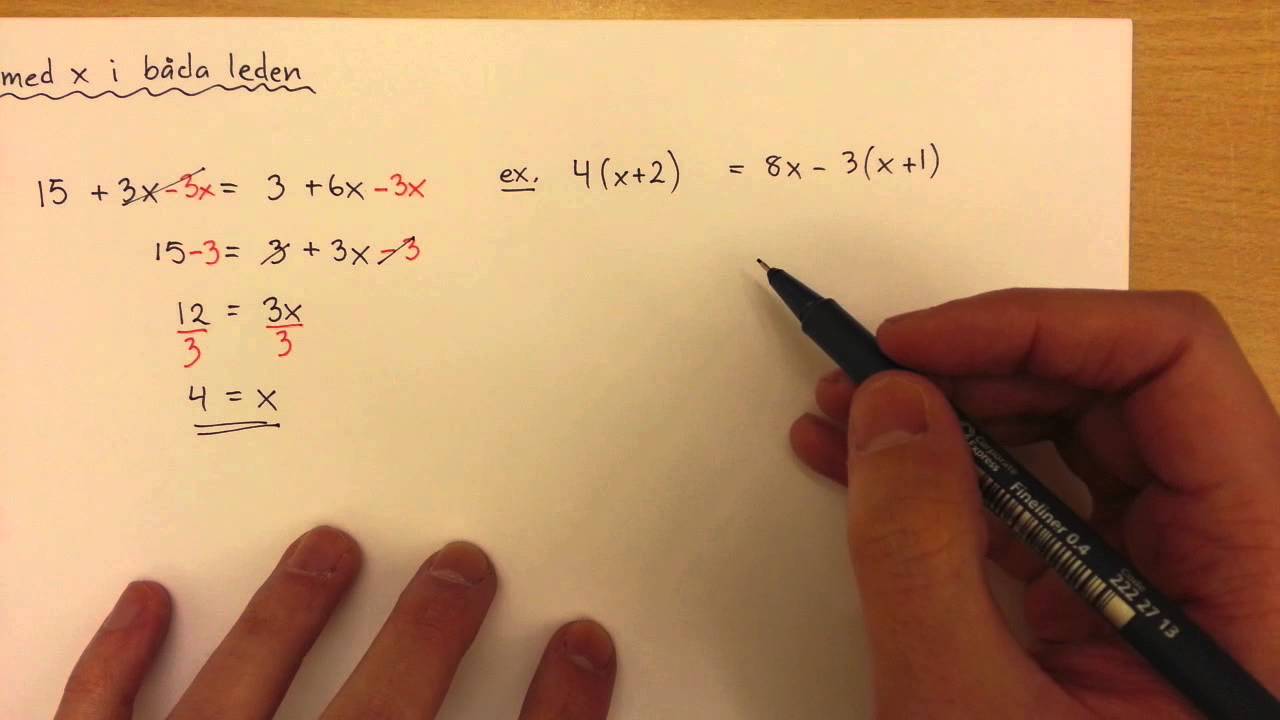 med x i båda leden
15 + 3x - 3x = 3 + 6x - 3x
15 - 3 = 3 + 3x - 3
12/3 = 3x/3
4 = x
ex. 4(x+2) = 8x - 3(x+1)
Corporate
Express
Fineliner 0.4
Code
222 27 13